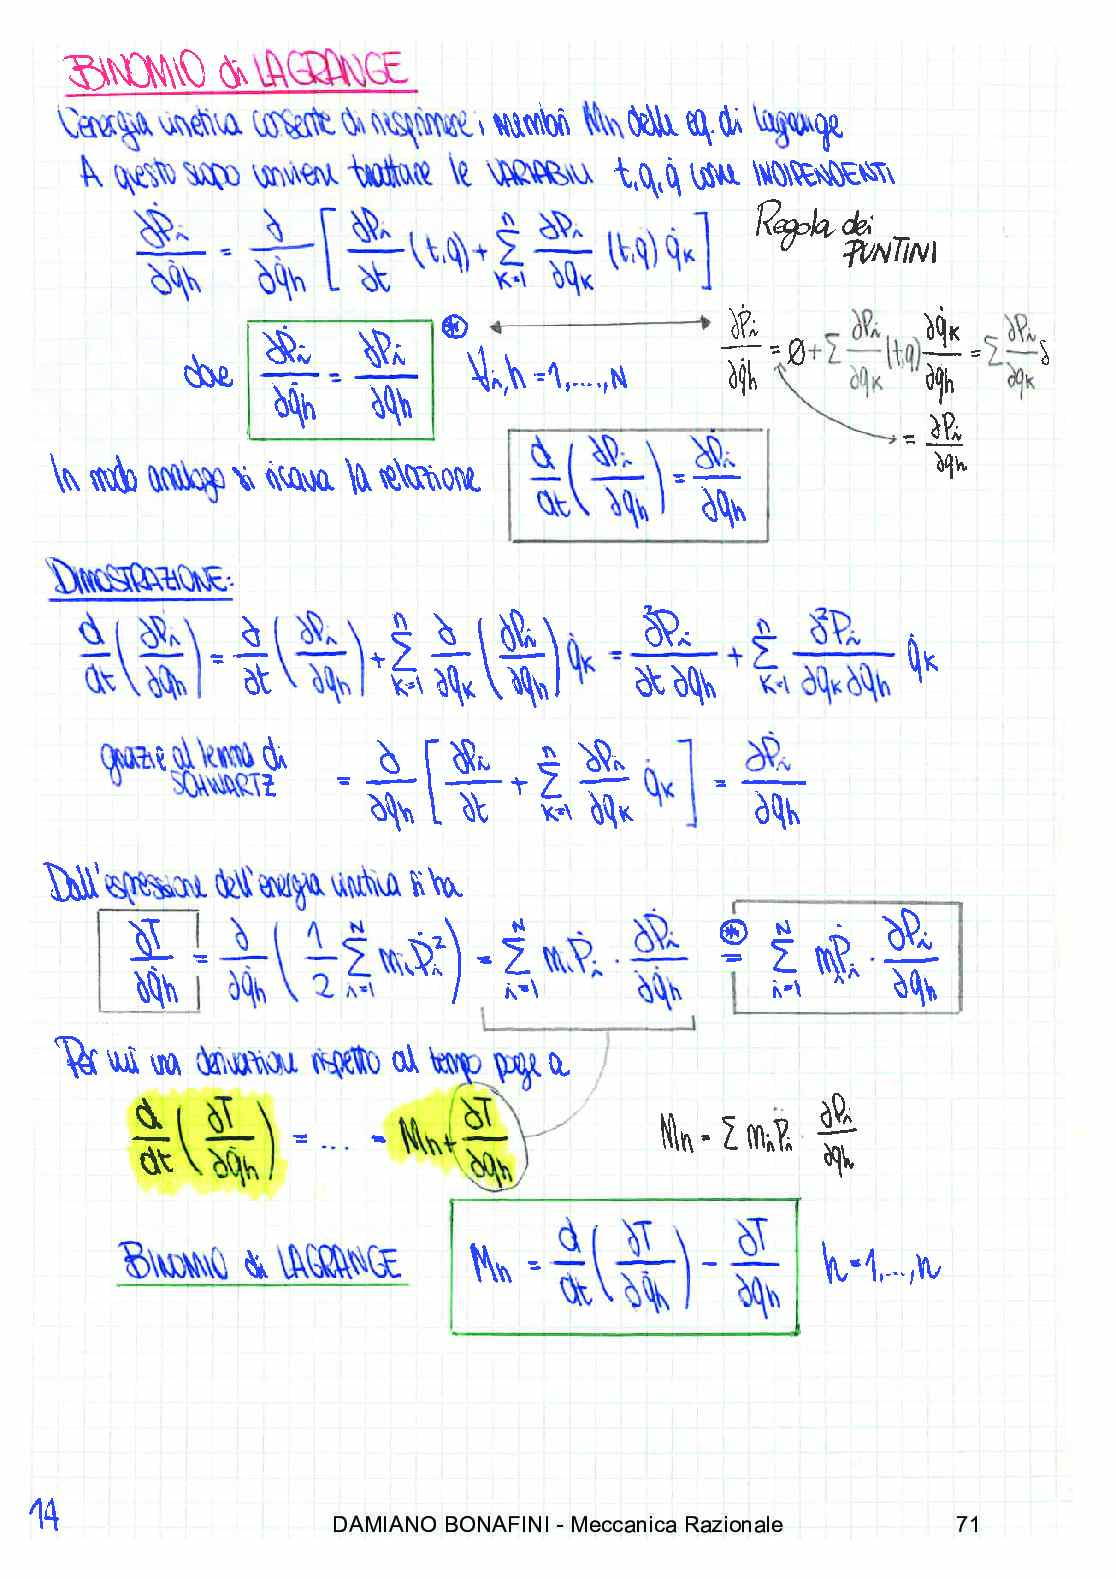 BINOMIO di LAGRANGE
L'energia cinetica consente di riesprimere i membri Mh delle eq. di Lagrange
A questo scopo conviene trattare le VARIABILI t, q, q̇ come INDIPENDENTI
∂Ṗi/∂q̇h = ∂/∂q̇h [ ∂Pi/∂t (t,q) + Σ_{k=1}^{n} ∂Pi/∂qk (t,q) q̇k ]
Regola dei
PUNTINI
dove ∂Ṗi/∂q̇h = ∂Pi/∂qh ⊛ ∀i,h = 1,....,N
∂Ṗi/∂q̇h = ∅ + Σ ∂Pi/∂qk (t,q) ∂q̇k/∂q̇h = Σ ∂Pi/∂qk δ
= ∂Pi/∂qh
In modo analogo si ricava la relazione d/dt ( ∂Pi/∂qh ) = ∂Ṗi/∂qh
DIMOSTRAZIONE:
d/dt ( ∂Pi/∂qh ) = ∂/∂t ( ∂Pi/∂qh ) + Σ_{k=1}^{n} ∂/∂qk ( ∂Pi/∂qh ) q̇k = ∂²Pi/∂t∂qh + Σ_{k=1}^{n} ∂²Pi/∂qk∂qh q̇k
grazie al lemma di
SCHWARTZ
= ∂/∂qh [ ∂Pi/∂t + Σ_{k=1}^{n} ∂Pi/∂qk q̇k ] = ∂Ṗi/∂qh
Dall'espressione dell'energia cinetica si ha
∂T/∂q̇h = ∂/∂q̇h ( 1/2 Σ_{i=1}^{N} mi Ṗi² ) = Σ_{i=1}^{N} mi Ṗi · ∂Ṗi/∂q̇h ⊛= Σ_{i=1}^{N} mi Ṗi · ∂Pi/∂qh
Per cui una derivazione rispetto al tempo porge a
d/dt ( ∂T/∂q̇h ) = ... = Mh + ∂T/∂qh
Mh = Σ mi P̈i · ∂Pi/∂qh
BINOMIO di LAGRANGE Mh = d/dt ( ∂T/∂q̇h ) - ∂T/∂qh h = 1,...,n
14
DAMIANO BONAFINI - Meccanica Razionale
71